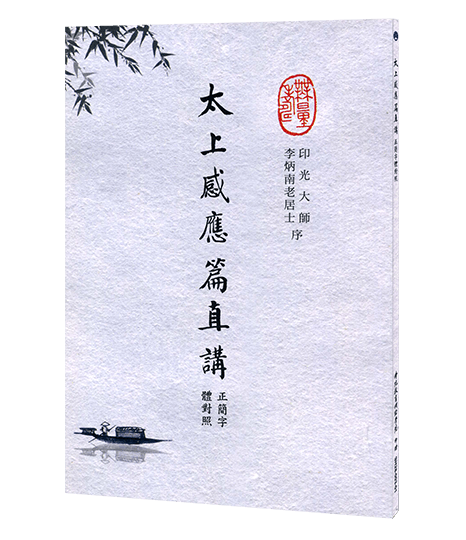 印光大師
李炳南老居士 序
太上感應篇直講
正簡字
體對照
太上感應篇直講 正簡字體對照